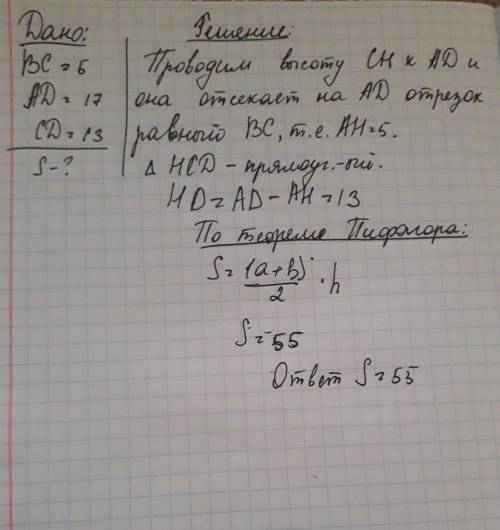 Дано:
BC = 5
AD = 17
CD = 13
S - ?
Решение:
Проводим высоту CH к AD и
она отсекает на AD отрезок
равный BC, т.е. AH = 5.
Δ HCD - прямоуг.-ый.
HD = AD - AH = 13
По теореме Пифагора:
S = (a+b)/2 · h
S = 55
Ответ S = 55